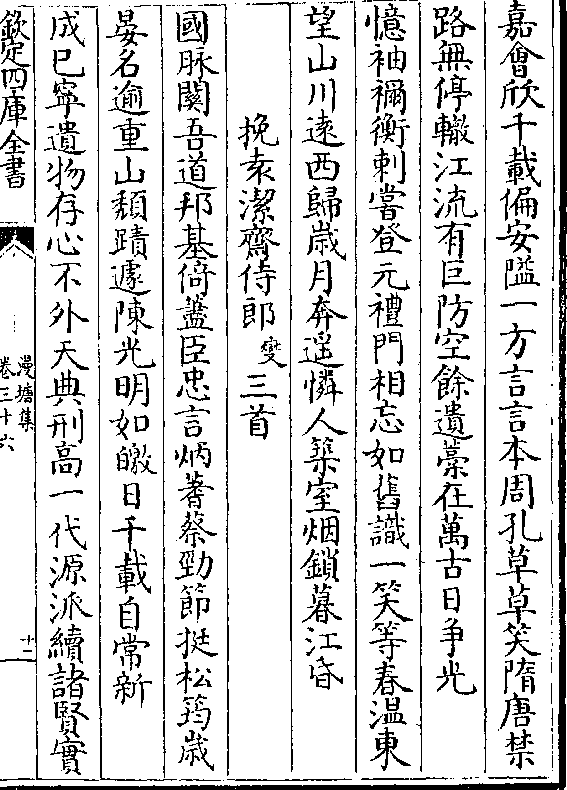 嘉會欣千載偏安隘一方言言本周孔草草笑隋唐禁
路無停轍江流有巨防空餘遺藁在萬古日爭光
憶袖禰衡刺嘗登元禮門相忘如舊識一笑等春温東
望山川逺西歸歳月奔遥憐人築室烟鎖暮江昏
挽袁潔齋侍郎燮三首
國脈關吾道邦基倚藎臣忠言炳蓍蔡勁節挺松筠歳
晏名逾重山頽蹟遽陳光明如皦日千載自常新
成已寧遺物存心不外天典刑高一代源派續諸賢實
欽定四庫全書
漫塘集
卷三十六
十二